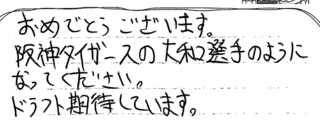 おめでとうございます。
阪神タイガースの大和選手のように
なってください。
ドラフト期待しています。